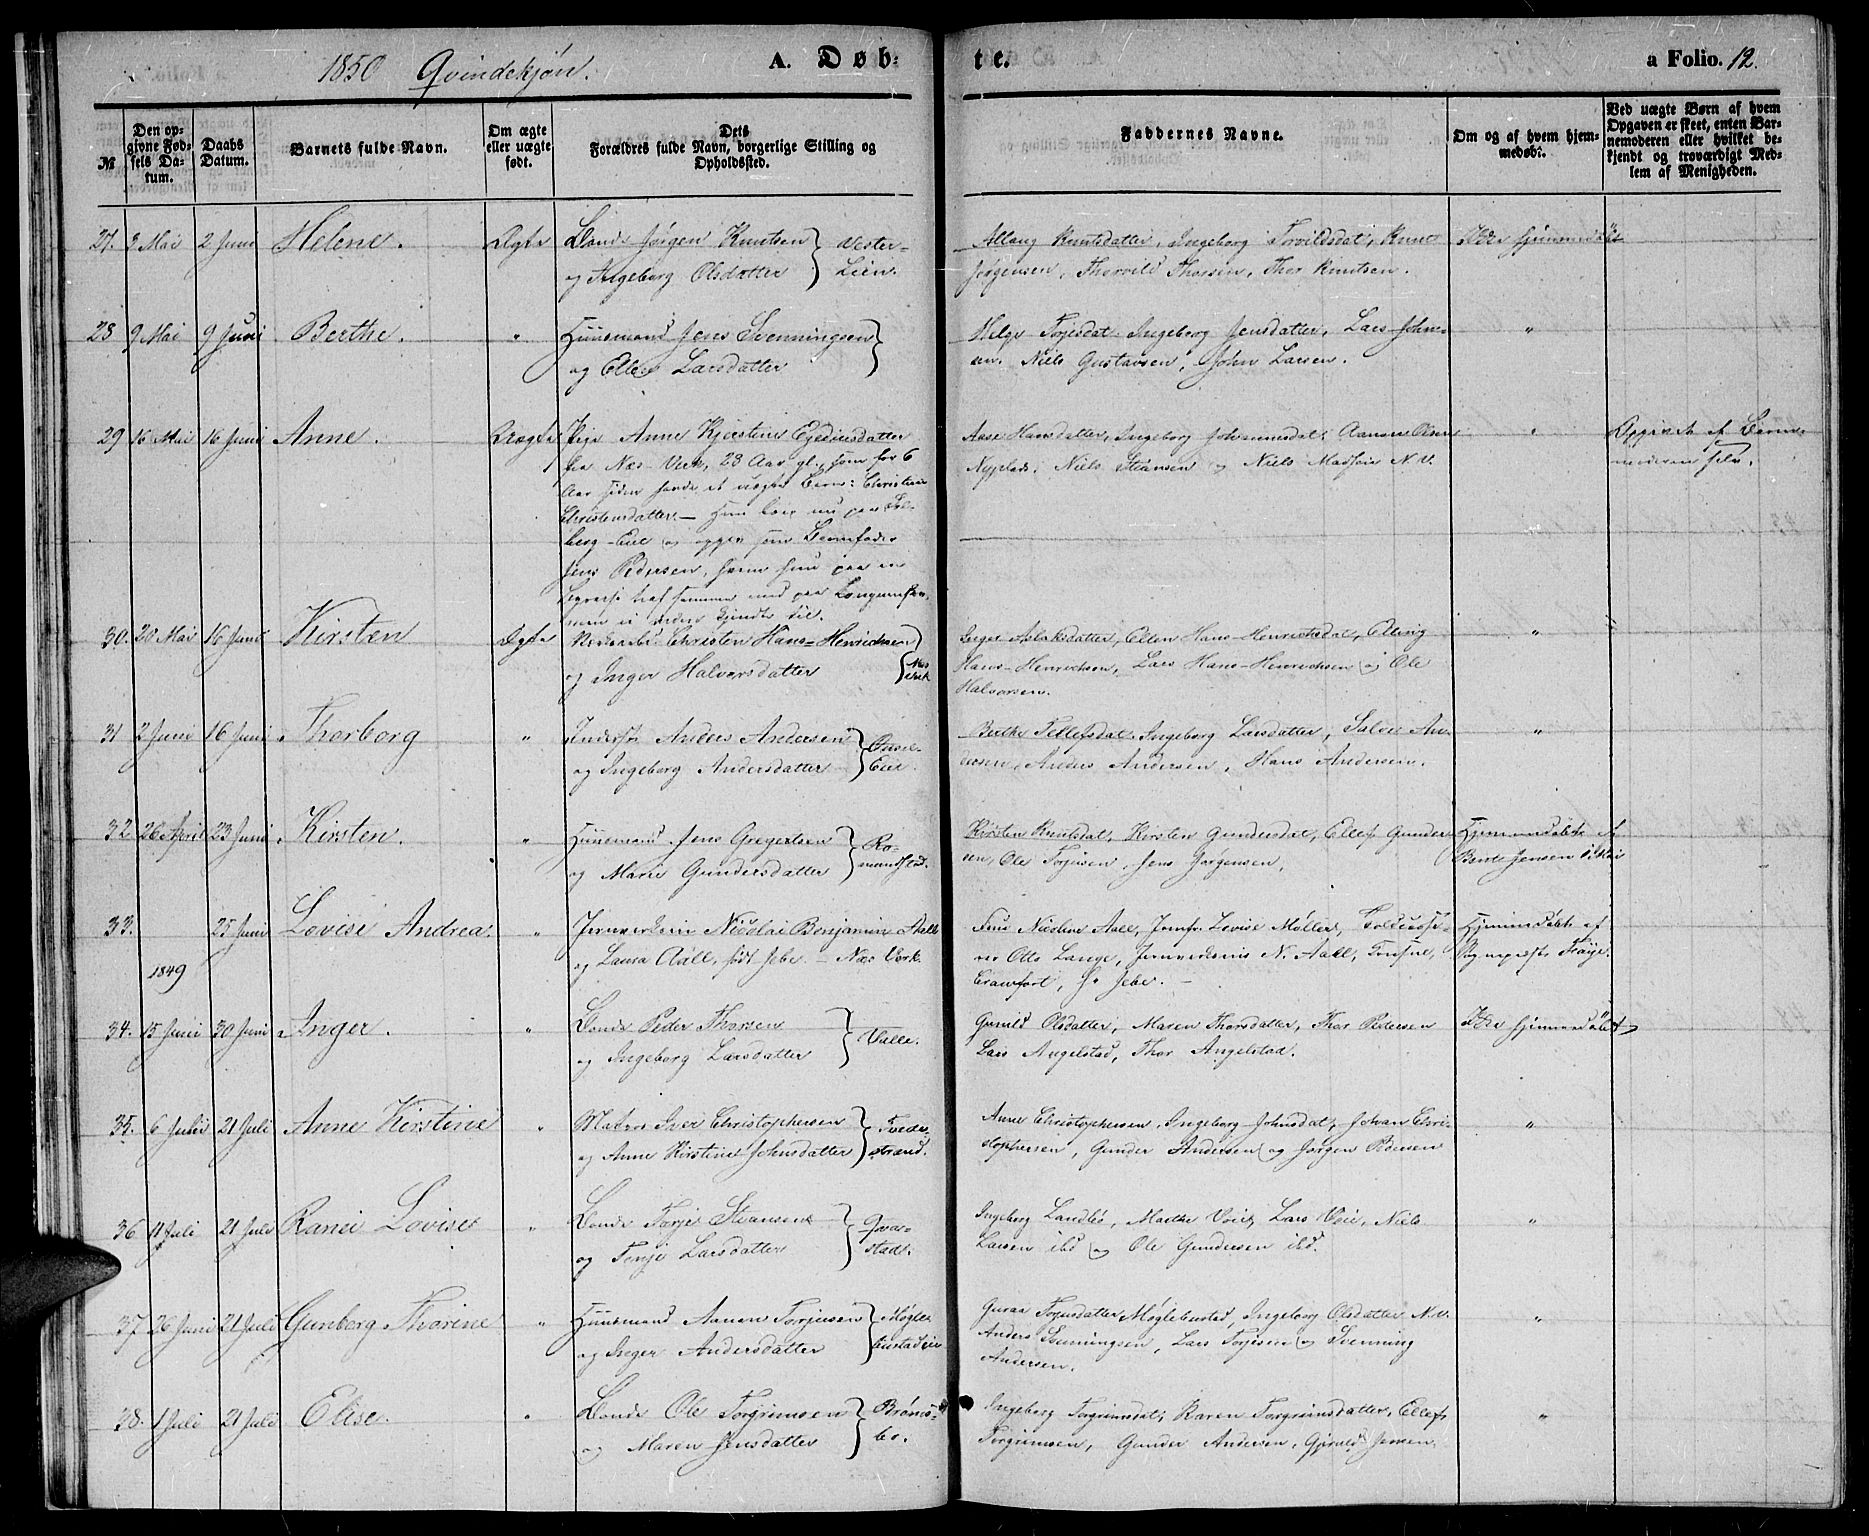 1850 Qvindekjøn. A. Døb- te. a Folio. 12.
№
Den opgivne Fødsels Datum.
Daabs Datum.
Barnets fulde Navn.
Om ægte eller uægte født.
Dets Forældres fulde Navn, borgerlige Stilling og Opholdssted.
Faddernes Navne.
Om og af hvem hjemmedøbt.
Ved uægte Børn af hvem Opgaven er skeet, enten Barnemoderen eller hvilket bekjendt og troværdigt Medlem af Menigheden.
27. 3 Mai 2 Juni Helene. Ægte Bonde Jørgen Knutsen
og Ingeborg Olsdatter
Vester-
Lien.
Knutsdatter, Ingeborg Torvildsdat, Knut
Jørgensen, Thorvild Thorsen, Thor Knutsen.
Ikke hjemmedøbt
28 9 Mai 9 Juni Berthe. " Huusmand Jens Svenningsen
og Ellen Larsdatter
Helge Torjesdat. Ingeborg Jensdatter, Lars John-
sen. Niels Gustavsen, John Larsen.
"
29 16 Mai 16 Juni Anne. Uægte Pige Anne Kjerstine Egediusdatter
fra Næs-Verk, 28 Aar gl., som for 6
Aar siden havde et uægte Barn: Christine
Christensdatter. — Hun boer nu paa Sol-
berg-Eie og opgav som Barnefader
Jens Pedersen, hvem hun paa en
Aase Hansdatter, Ingeborg Johannesdat, Aanon Olsen
Nyplads. Niels Steansen og Niels Madsen N.V.
"
Opgivet af Barne-
moderen selv.
30. 20 Mai 16 Juni Kirsten Ægte Christen Hans-Henrichsen
og Inger Halvorsdatter
Næs
Verk
Inger Aslaksdatter, Ellen Hans-Henrichsdat, Ellevig
Hans-Henrichsen, Lars Hans-Henrichsen og Ole
Halvorsen.
"
31 2 Juni 16 Juni Thorborg " Inderst Anders Andersen
og Ingeborg Andersdatter
Eie.
Berthe Tellefsdat. Ingeborg Larsdatter, Salve An-
dersen, Anders Andersen, Hans Andersen.
"
32 26 April 23 Juni Kirsten. " Huusmand Jens Gregertsen
og Maren Gundersdatter
Ro-
mundstad.
Kirsten Knutsdat, Kirsten Gundersdat, Ellef Gunder-
sen, Ole Torjusen, Jens Jørgensen.
Hjemmedøbt af
Bente Jensen i Mai
33. 1849 25 Juni Lovise Andrea. " Jernverkseier Nicolai Benjamin Aall
og Laura Aall, født Jebe. - Næs Verk.
Frue Nicoline Aall, Jomfr. Lovise Møller, Toldcasse-
rer Otto Lange, Jernverkseier N. Aall,
Crawfort, Hr Jebe. —
Hjemmedøbt af
Sognepræst Frøys.
34. 15 Juni 30 Juni Inger. " Bonde Peder Thorsen
og Ingeborg Larsdatter
Valle.
Gunild Olsdatter, Maren Thorsdatter, Thor Pedersen
Lars Angelstad, Thor Angelstad.
Ikke hjemmedøbt
35. 6 Juli 21 Juli Anne Kirstine " Matros Iver Christophersen
og Anne Kirstine Johnsdatter
Tvede-
strand.
Anne Christophersen, Ingeborg Johnsdat, Johan Chri-
stophersen, Gunder Andersen og Jørgen Pedersen
"
36 11 Juli 21 Juli Ranei Lovise " Bonde Torje Steansen
og Terje Larsdatter
Qvar-
stad.
Ingeborg Landbø, Marthe Voie, Lars Voie, Niels
Larsen ibd og Ole Gundersen ibd.
"
37 26 Juni 21 Juli Gunborg Thorine " Huusmand Aanon Torjusen
og Inger Andersdatter
Møgle-
bustadeie
Guraa Torjusdatter Møglebustad, Ingeborg Olsdatter N.V.
Anders Svenningsen, Lars Torjusen og Svenning
Andersen.
"
38. 1 Juli 21 Juli Elise. " Bonde Ole Torgrimsen
og Maren Jensdatter
Brøms-
bo.
Ingeborg Torgrimsdat, Karen Torgrimsdatter, Ellef
Torgrimsen, Gunder Andersen, Gjeruld Jensen.
"